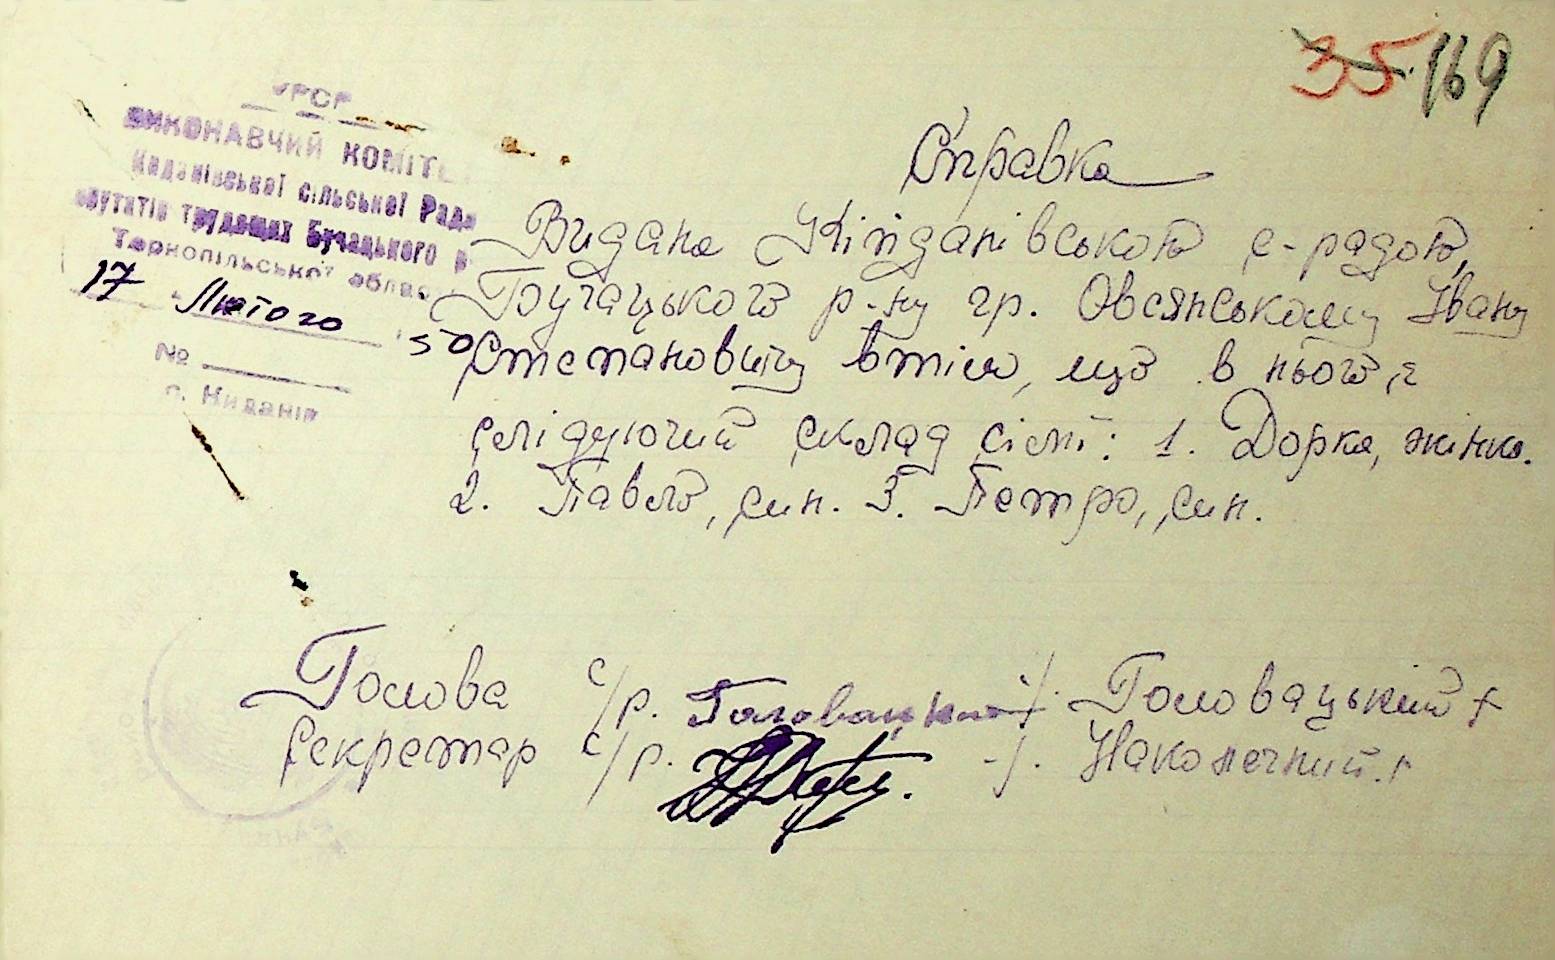 35 169
УРСР
ВИКОНАВЧИЙ КОМІТЕ
Киданівської сільської Ради
депутатів трудящих Бучацького р
Тернопільської област
17 Лютого 50
№
с. Киданів
Справка
Видана Кійданівською с-радою,
Бучацького р-ну гр. Овсянському Івану
Степановичу втім, що в нього є
слідуючий склад сімї: 1. Дорка, жінка.
2. Павло, син. 3. Петро, син.
Голова с/р. Головацкий /. Головацький /
Секретар с/р. -/. Наконечний./